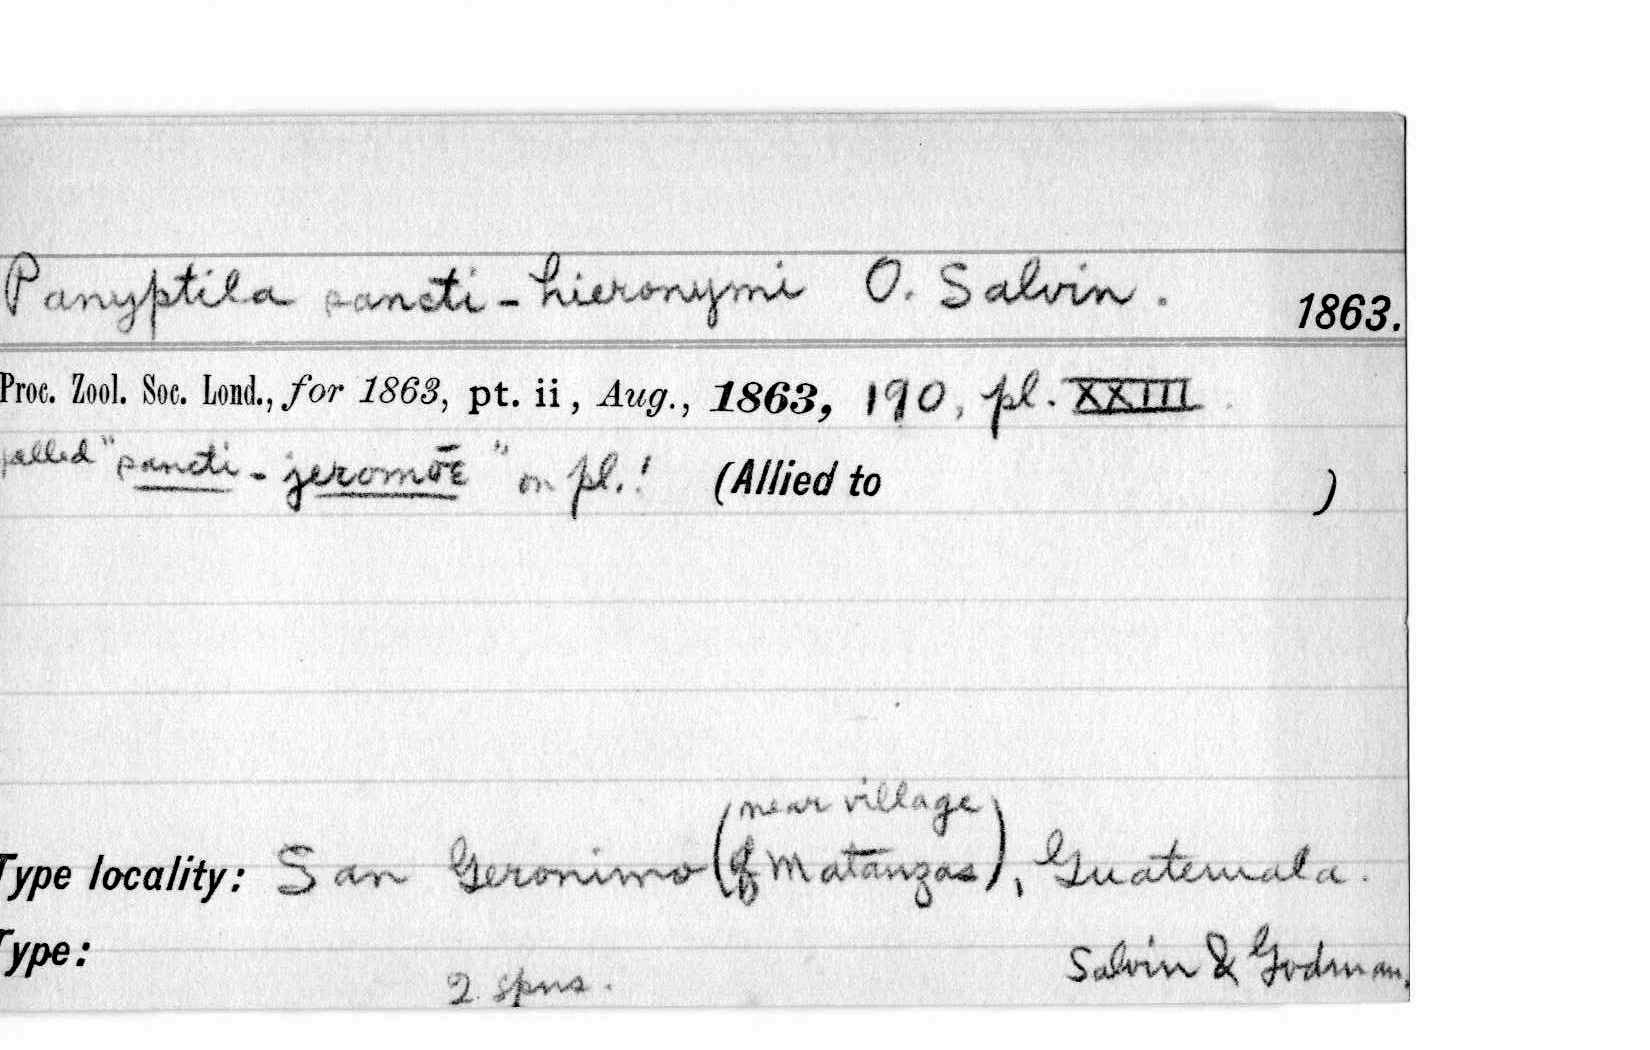 Panyptila sancti-hieronymi O. Salvin. 1863.
Proc. Zool. Soc. Lond., for 1863, pt. ii, Aug., 1863, 190, pl. XXIII
called "sancti-jeromœ" on pl.! (Allied to )
(near village
Type locality: San Geronimo of Matanzas), Guatemala.
Type: 2 spns. Salvin & Godman.